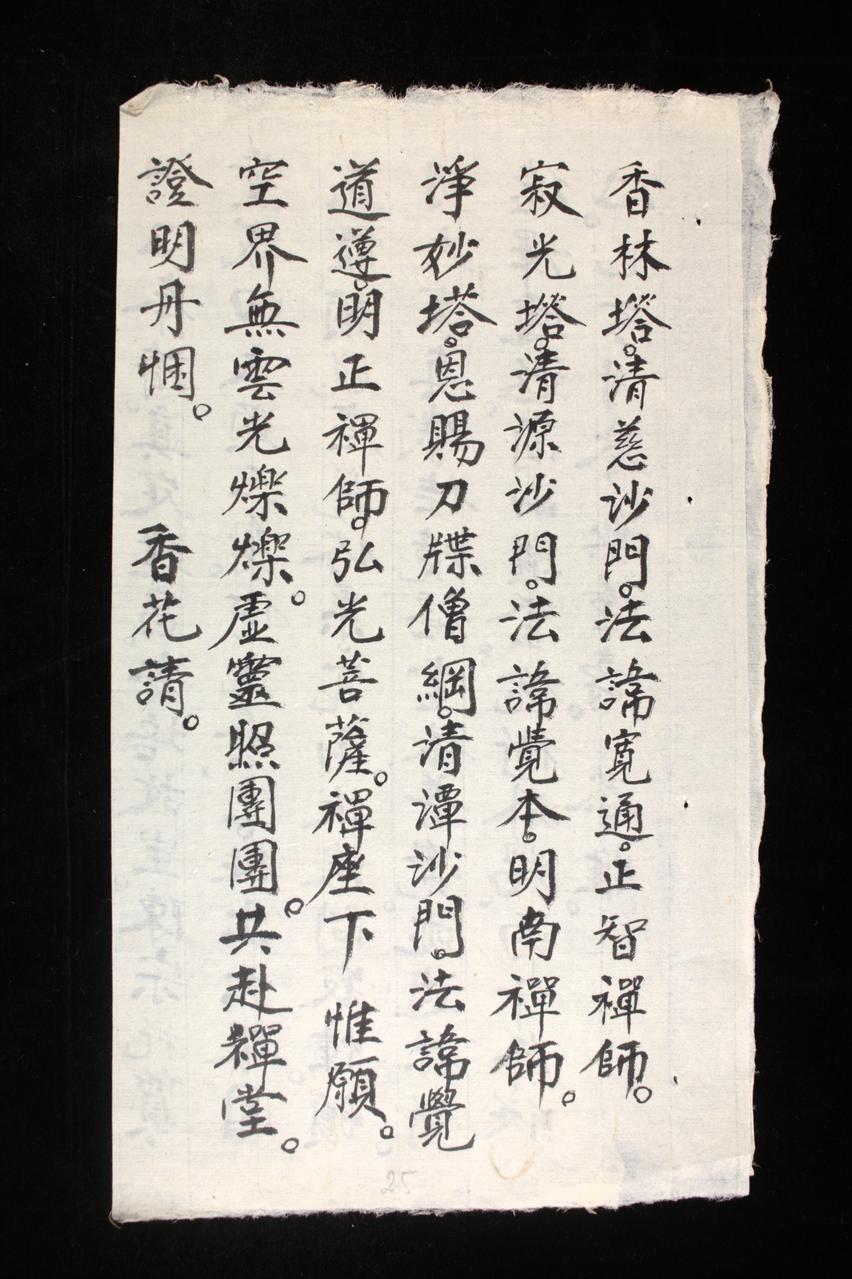 香林塔。清慈沙門。法諱寬通。正智禪師。
寂光塔。清源沙門。法諱覺本。明南禪師。
淨妙塔。恩賜刀牒僧綱。清潭沙門。法諱覺
道遵。明正禪師。弘光菩薩。禪座下 惟願。
空界無雲光爍爍。虛靈照團團。共赴禪堂。
證明丹悃。 香花請。
25